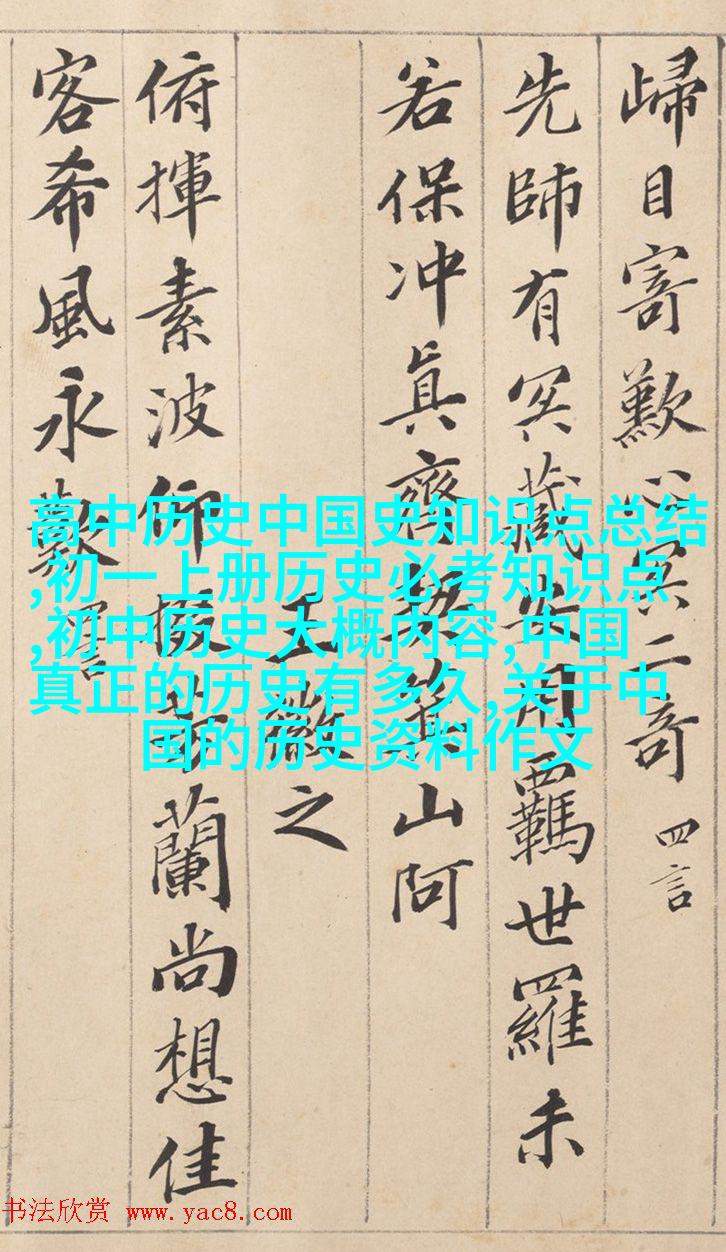 歸目寄歎心冥二奇 四言
先師有冥藏安用羈世羅未
若保冲真齊契箕山阿
王徽之
俯揮素波仰掇芳蘭尚想佳
客希風永歎
高中历史中国史知识点总结
,初一上册历史必考知识点
,初中历史大概内容,中国
真正的历史有多久,关于中
国的历史资料作文
书法欣赏 www.yac8.com